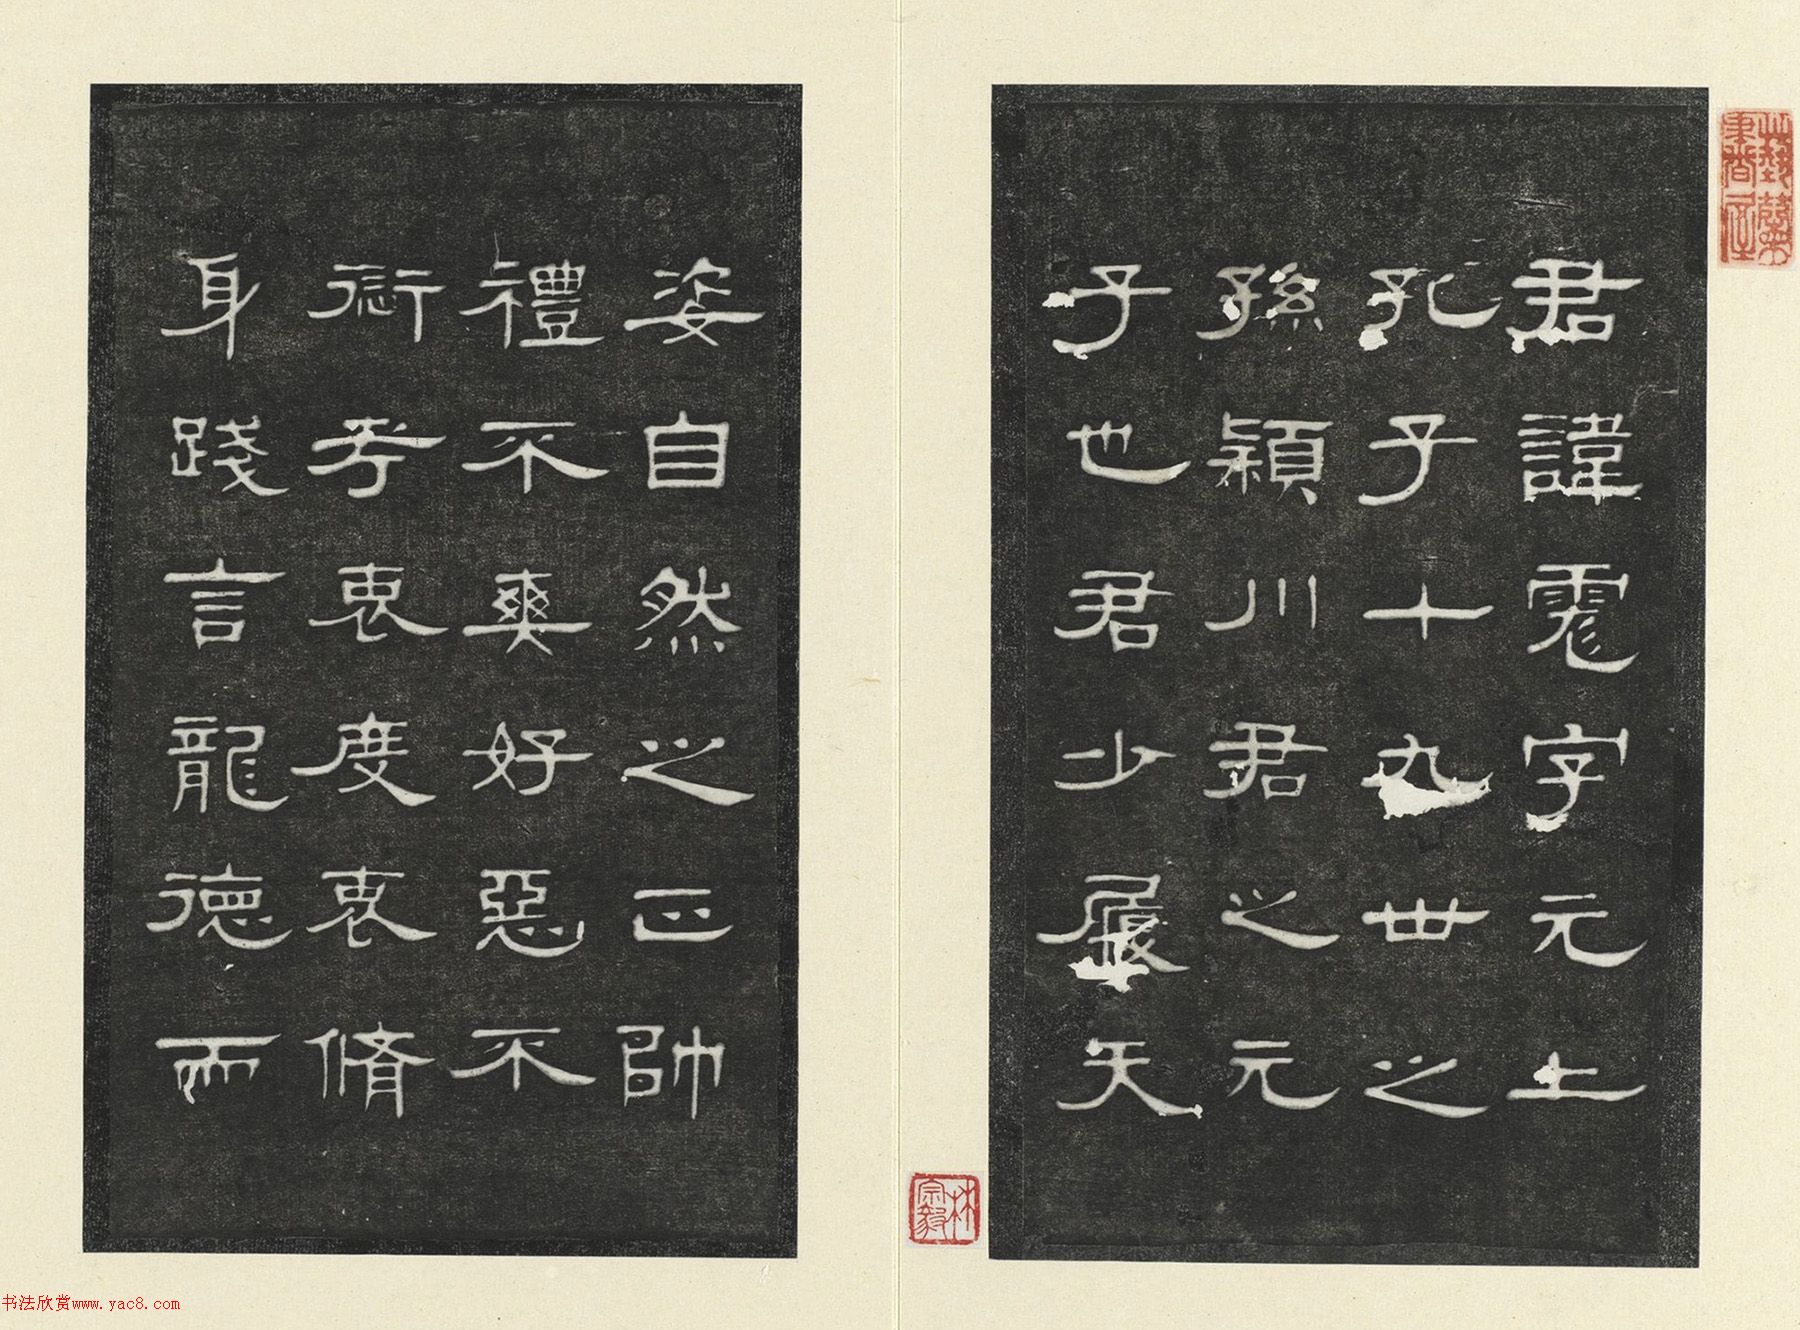 君諱䨲字元上
孔子十九世之
孫穎川君之元
子也君少履天
姿自然之正帥
禮不爽好惡不
愆考衷度衷脩
身踐言龍德而
林宗毅
书法欣赏www.yac8.com